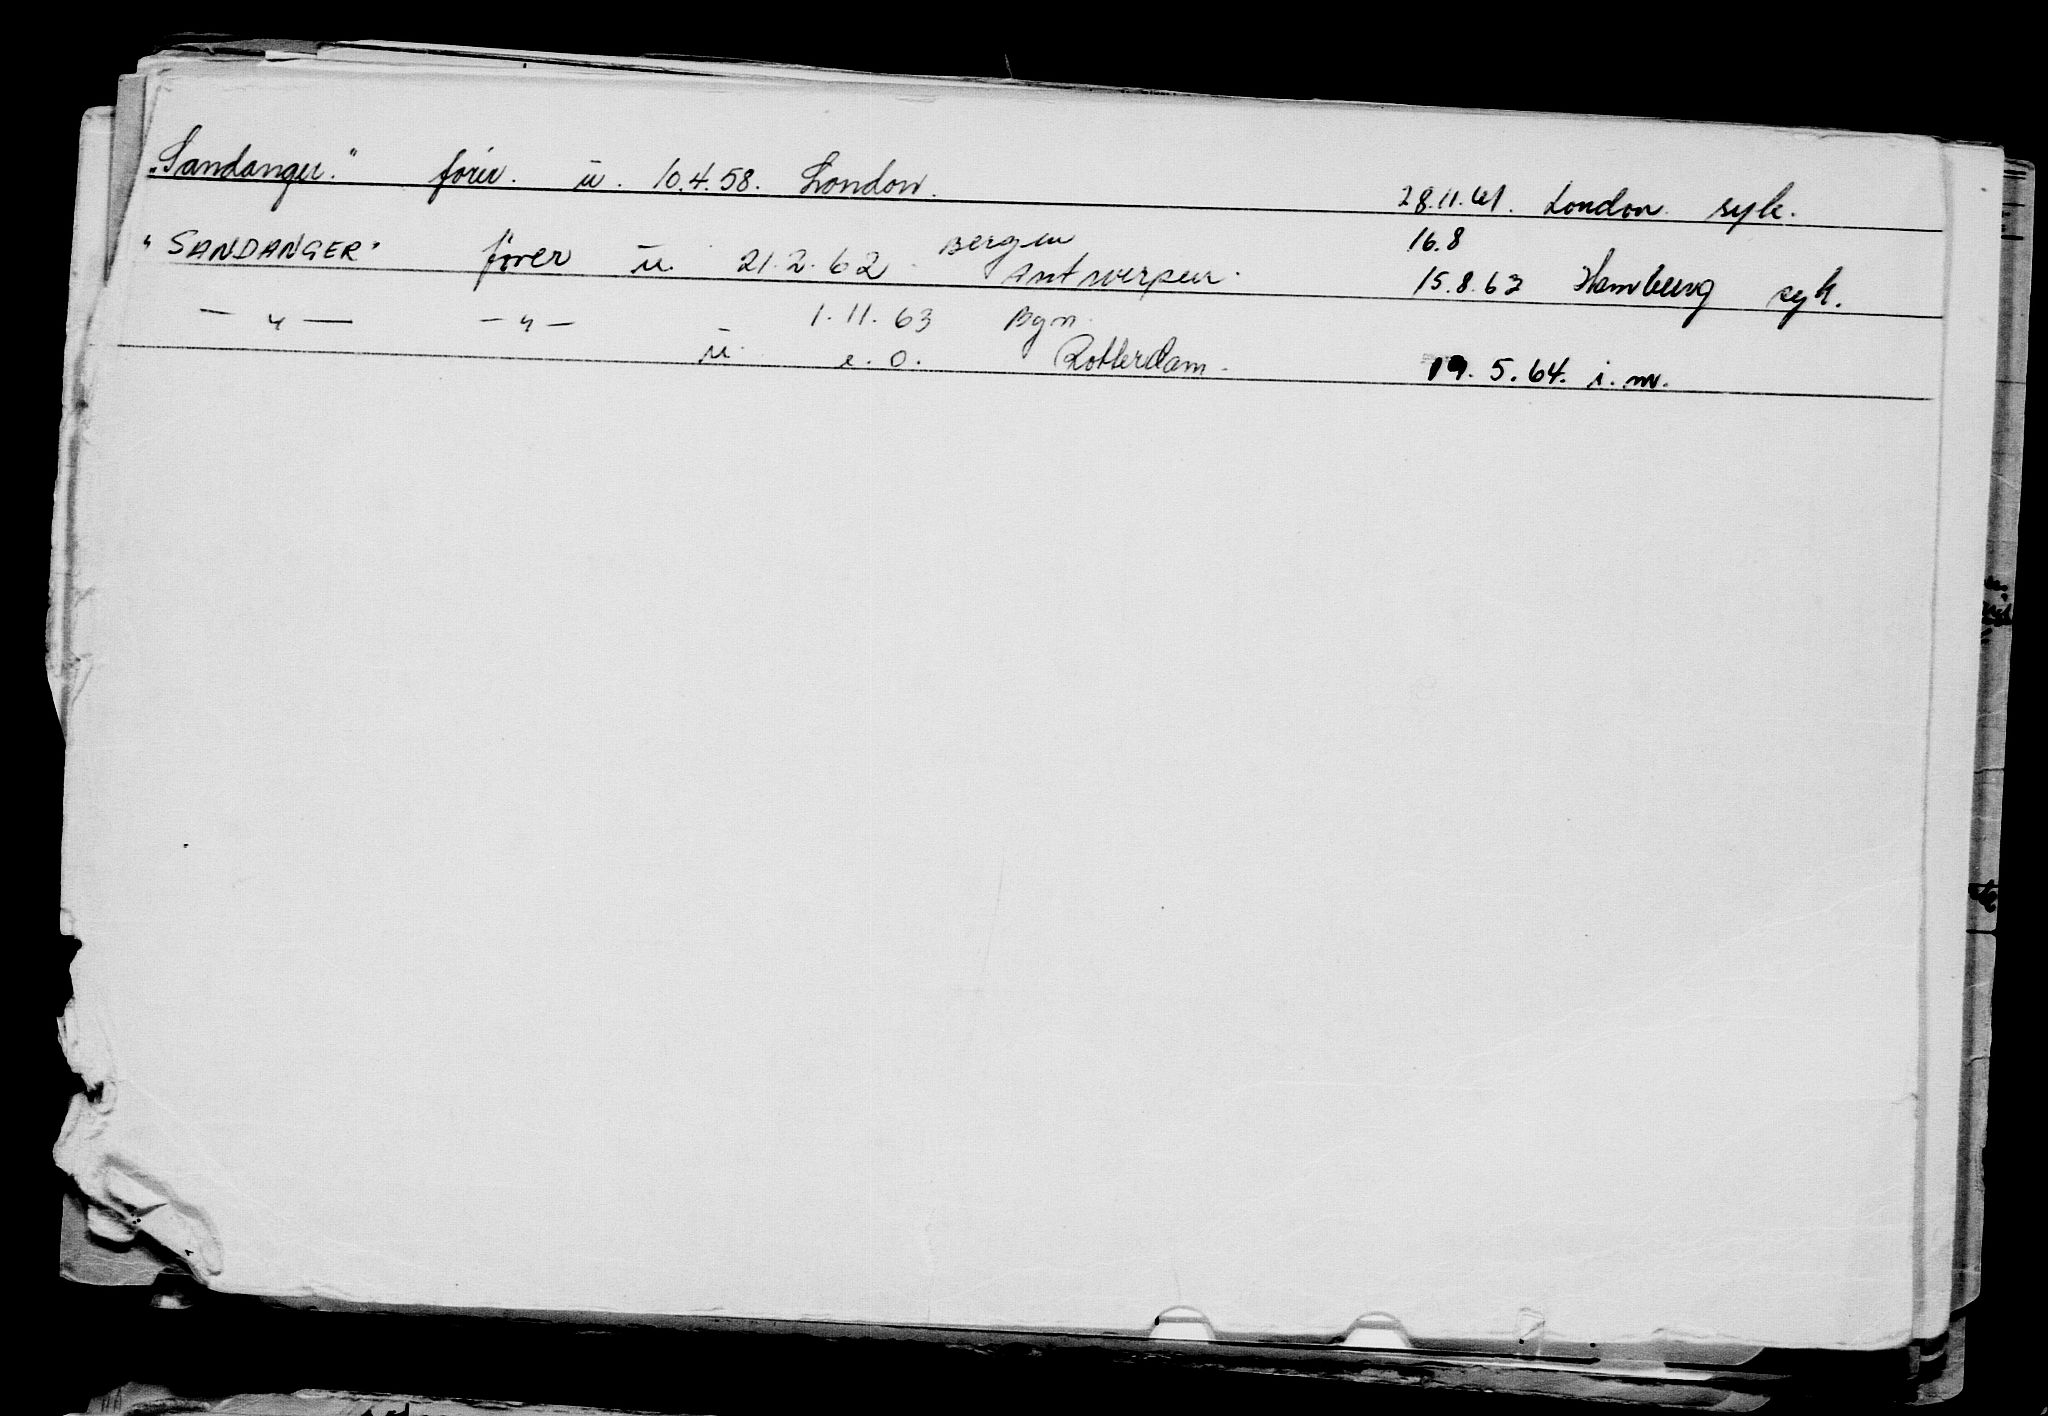 „Sandanger." fører. u. 10.4.58. London. 28.11.61. London syk.
"SANDANGER" fører u. 21.2.62 Bergen 16.8
Antwerpen. 15.8.63 Hamburg syk.
— " — — " — 1.11.63 Bgn.
u. e.o. Rotterdam. 19.5.64. i.m.